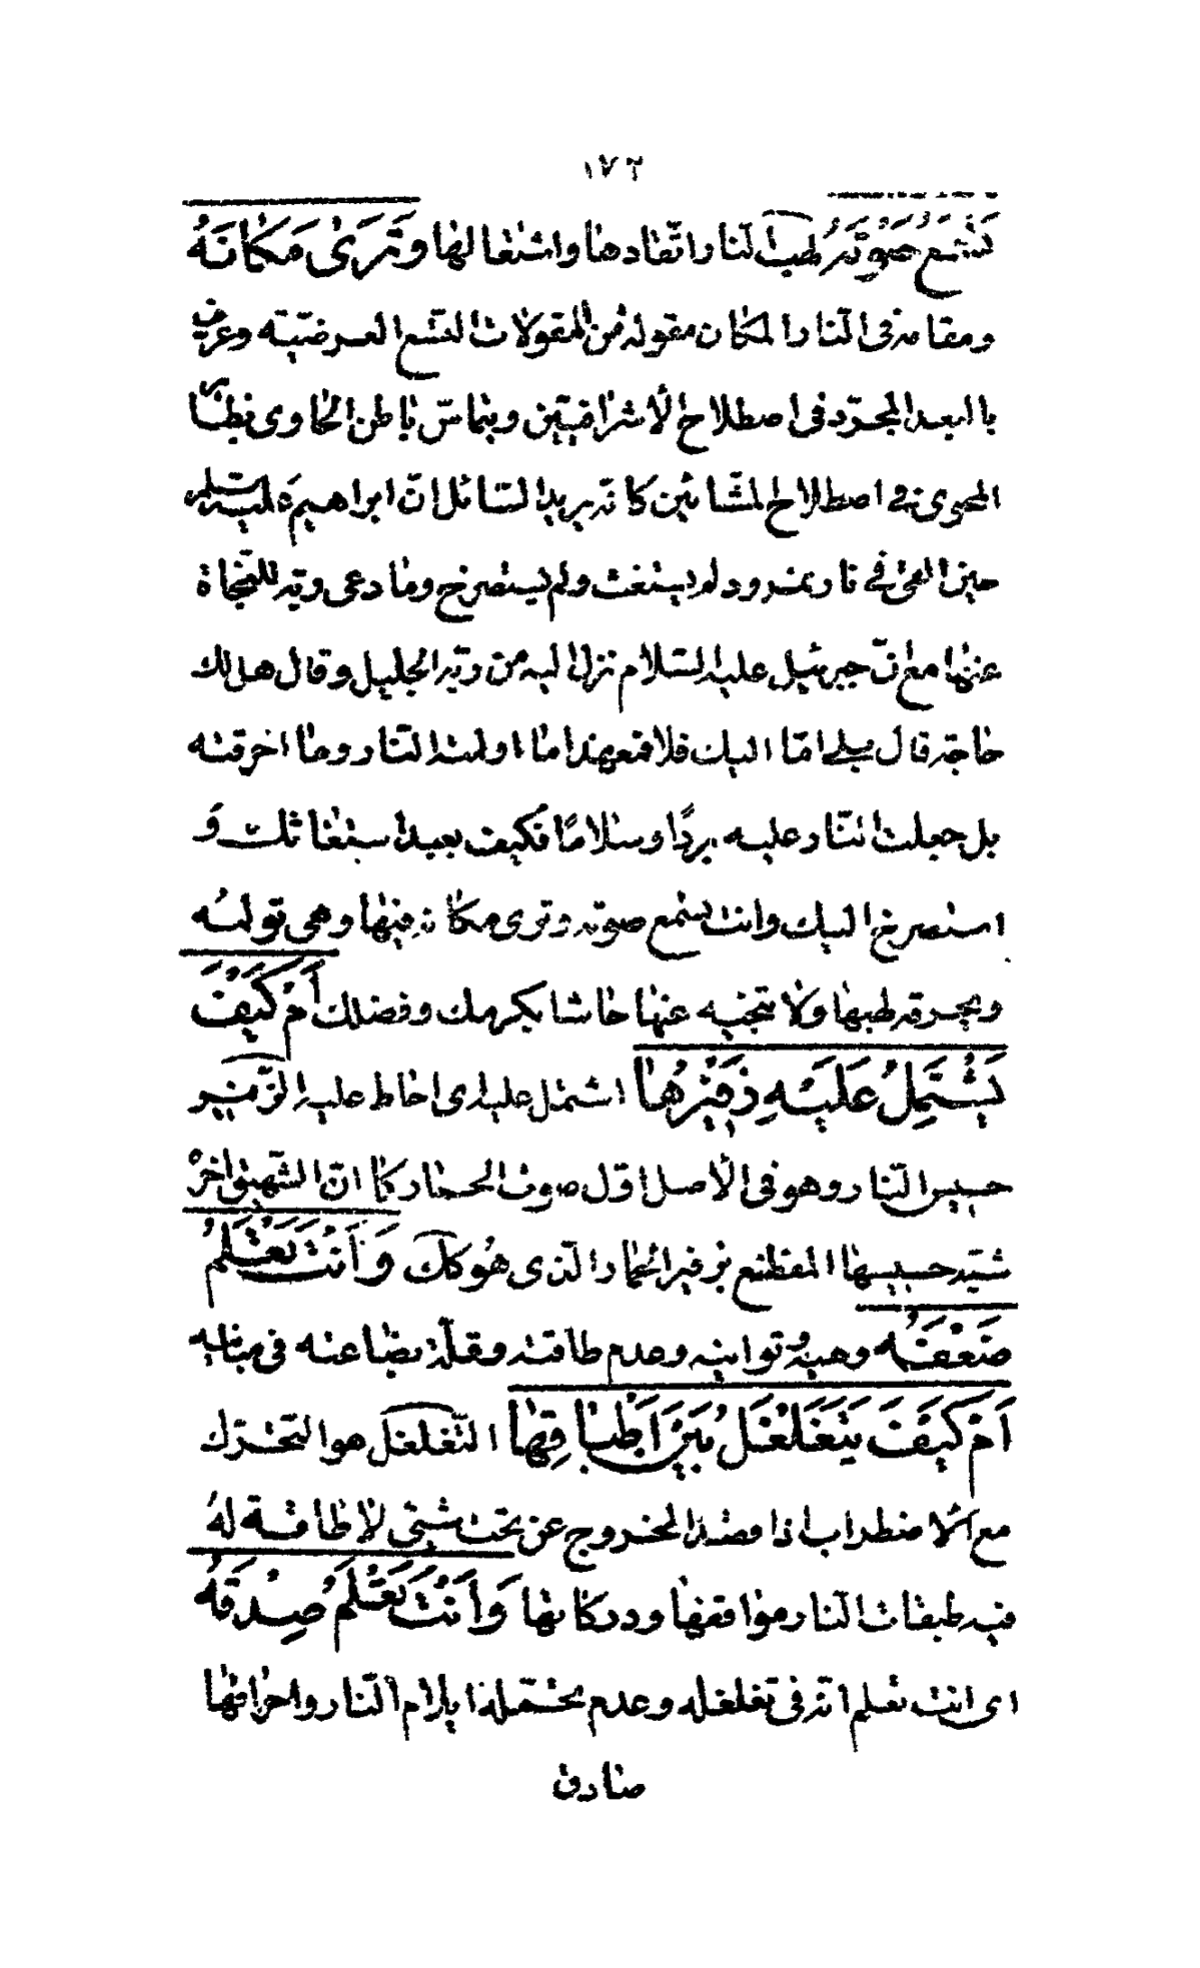 ١٧٢
تَسْمَعُ صَوْتَهُ لهب النار اتقادها واشتعالها وَتَرىٰ مَكانَهُ
ومقامه في النار المكان مقولة من المقولات التسع العرضيّة وعرف
بالبعد المجرّد في اصطلاح الأشراقيين وبتماسّ باطن الحاوى بظاهر
المحوى في اصطلاح المشّائين كانّه يريد السّائل انّ ابراهيم عليه السلم
حين القى في نار نمرود لم يستغث ولم يستصرخ وما دعى ربّه للنجاة
عنها مع انّ جبرئيل عليه السّلام نزل اليه من ربّه الجليل وقال هل لك
حاجة قال بلى امّا اليك فلا فمع هذا ما اولمته النّار وما احرقته
بل جعلت النّار عليه بردًا وسلامًا فكيف بعبد استغاثك و
استصرخ اليك وانت تسمع صوته وترى مكانه فيها وهى تولمه
ويحرقه لهبها ولا تنجيه عنها حاشا بكرمك وفضلك أَمْ كَيْفَ
يَشْتَمِلُ عَلَيْهِ زَفيرُهٰا اشتمل عليه اى احاط عليه الزّفير
حسيس النّار وهو في الأصل اوّل صوت الحمار كما انّ الشّهيق آخره
شبّه حسيسها المفظع بزفير الحمار الّذى هو كك وَأَنْتَ تَعْلَمُ
ضَعْفَهُ وهيه وتوانيه وعدم طاقته وقلّة بضاعته في
اَمْ كَيْفَ يَتَغَلْغَلُ بَيْنَ اَطْبٰاقِهٰا التّغلغل هو التحرّك
مع الاضطراب اذا قصد الخروج عن تحت شيئى لا طاقة له
فيه طبقات النّار مواقفها ودركاتها وَأَنْتَ تَعْلَمُ صِدْقَهُ
اى انت تعلم انّه في تغلغله وعدم تحمّله ايلام النّار واحراقها
صادق